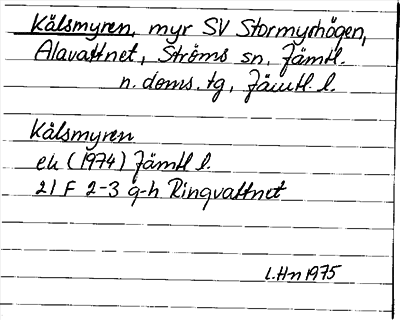 Kålsmyren, myr SV Stormyrhögen,
Alavattnet, Ströms sn, Jämtl.
n. doms. tg, Jämtl. l.
Kålsmyren
ek (1974) Jämtl l.
21 F 2-3 g-h Ringvattnet
L.Hn 1975